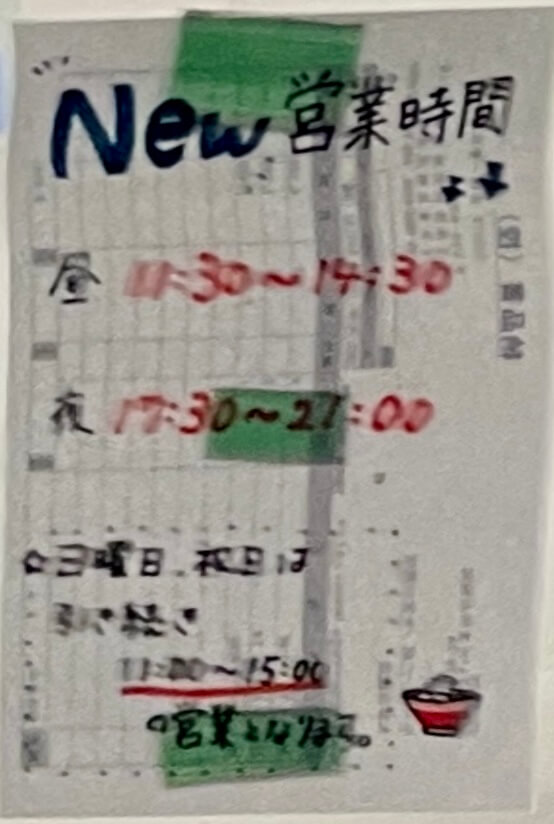 New 営業時間
昼 11:30～14:30
夜 17:30～21:00
☆日曜日、祝日は
引き続き
11:00～15:00
の営業となります。